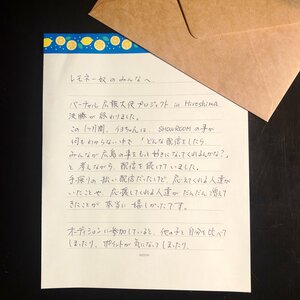 レモネー奴のみんなへ
バーチャル広報大使プロジェクト in Hiroshima
決勝が終わりました。
この1ヶ月間、うさちゃんは、SHOWROOMの事が
何もわからない中で「どんな配信をしたら
みんなが広島の事をもっと好きになってくれるかな?」
と考えながら、配信を続けていました。
手探りの拙い配信だったけど、応えてくれる人達が
いたことや、応援してくれる人達がだんだん増えて
きたことが本当に嬉しかったです。
オーディションに参加していると、他の子と自分を比べて
しまったり、ポイントが気になってしまったり、